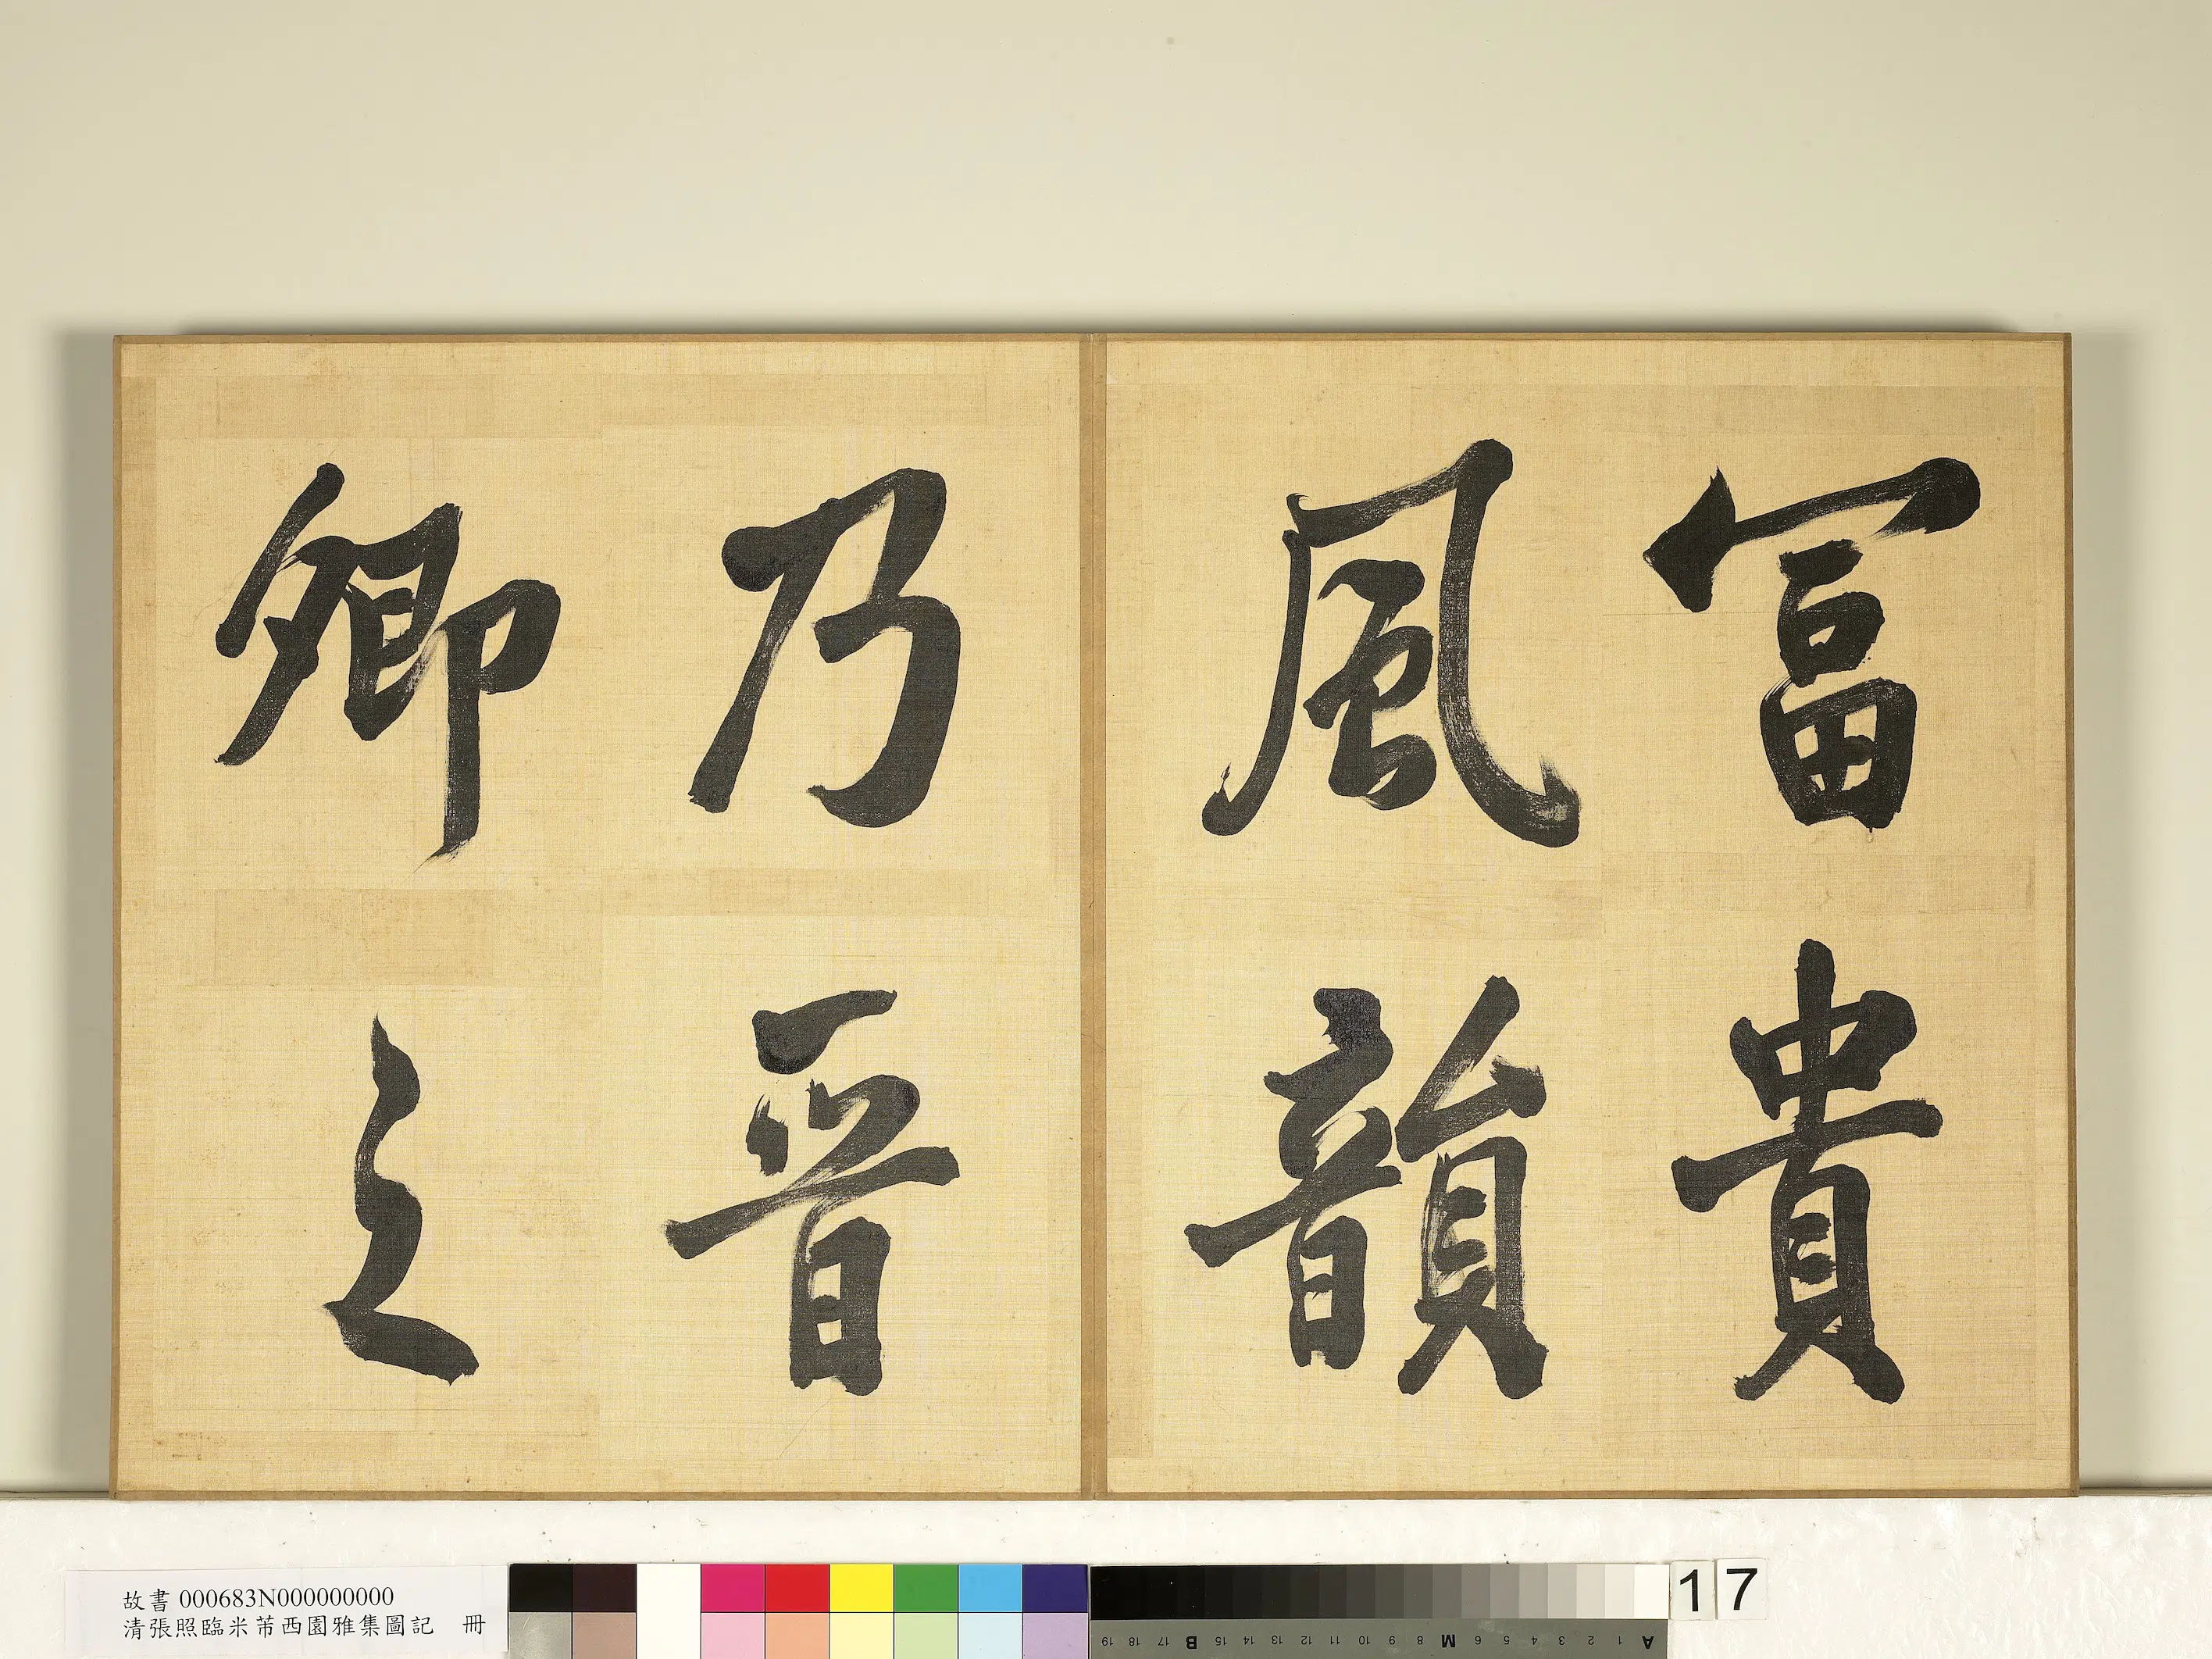 冨貴
風韻
乃晉
卿之
故書 000683N000000000
清張照臨米芾西園雅集圖記 冊
19 18 17 B 16 15 14 13 12 11 10 9 8 M 7 6 5 4 3 2 1 A
17